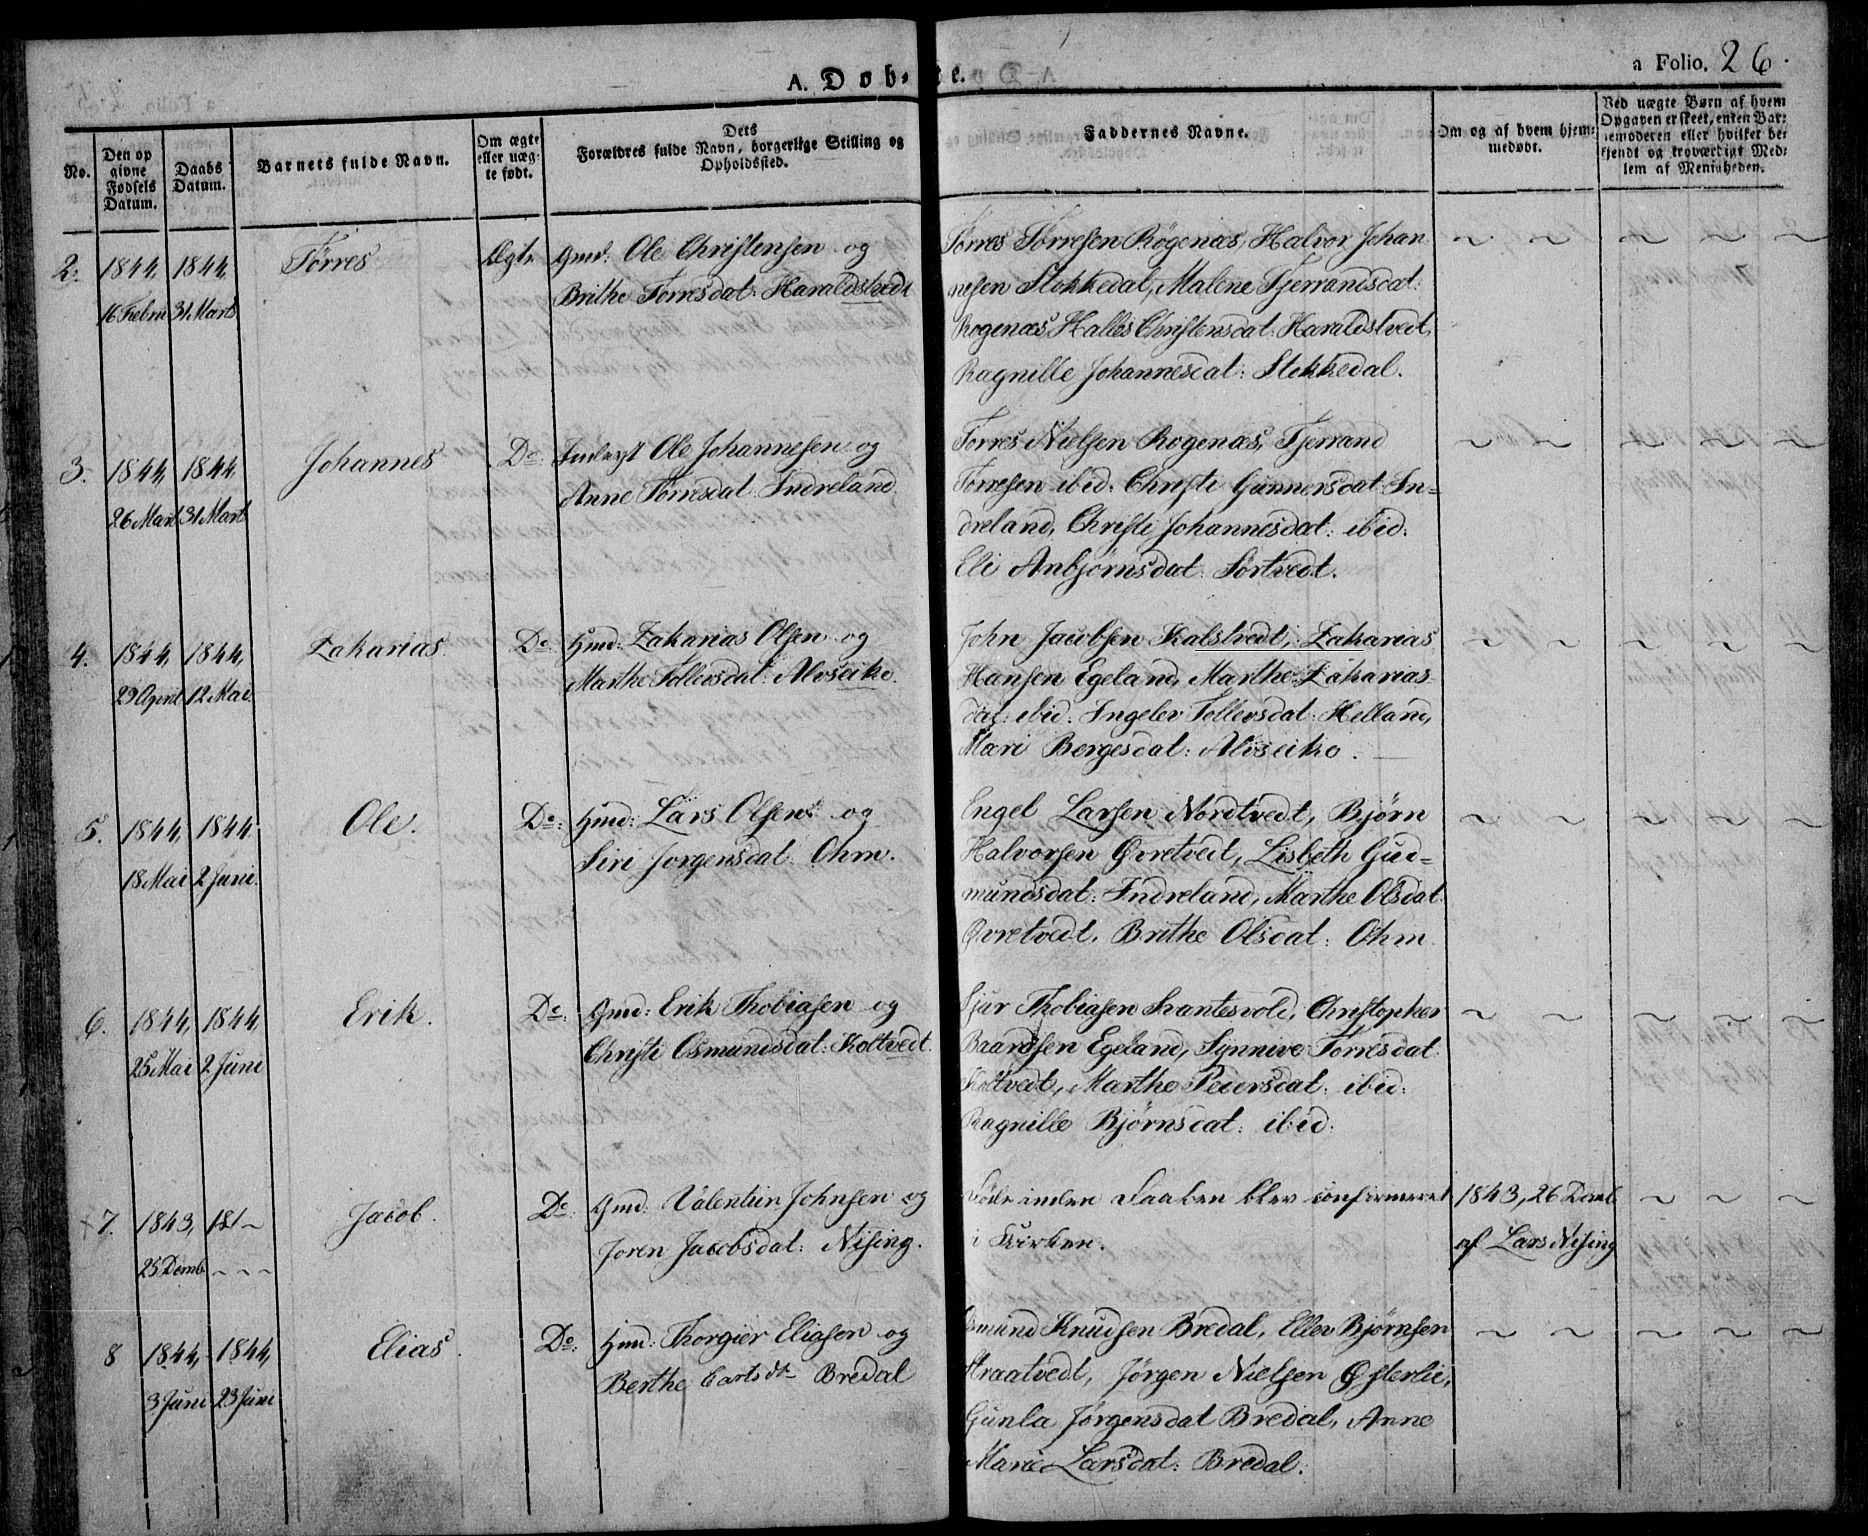 A. Døbte.
a Folio. 26.
No.
Den op
givne
Fødsels
Datum.
Daabs
Datum.
Barnets fulde Navn.
Om ægte
eller uæg-
te født.
Dets
Forældres fulde Navn, borgerlige Stilling og
Opholdssted.
Faddernes Navne.
Om og af hvem hjem-
medøbt.
Ved uægte Børn af hvem
Opgaven er skeet, enten Bar-
nemoderen eller hvilket be-
kjendt og troværdigt Med-
lem af Menigheden.
2. 1844, 1844, Tørres Ægte Gmd: Ole Christensen og
16 Febru 31 Marts Brithe Torresdat: Haraldstvedt
Tørres Tørresen Røgenæs, Halvor Johan
nesen Stokkedal, Malene Tjerrandsdat:
Rogenæs, Halles Christensdat: Haraldstvedt,
Ragnille Johannesdat: Stokkedal.
3. 1844, 1844, Johannes Do: Inderst Ole Johannesen og
26 Mart 31 Mart Anne Torresdat Indreland
Torres Nielsen Rogenæs, Tjerrand
Torresen ibid: Christi Gunnersdat In=
dreland, Christi Johannesdat: ibid:
Eli Anbjørnsdat: Sørtvedt.
4. 1844, 1844, Zakarias Do: Hmd: Zakarias Olsen og
29 April 12 Mai Marthe Tollevsdat: Alvseike.
John Jacobsen Kalstvedt, Zakarias
Hansen Egeland, Marthe Zakarias-
dat: ibid: Ingelev Tollevsdat: Helland,
Mari Bergesdat: Alvseike.
5. 1844, 1844 Ole. Do: Hmd: Lars Olsen og
18 Mai 2 Juni. Siri Jorgensdat: Ohm.
Engel Larsen Nordtvedt, Bjørn
Halvorsen Øvretvedt, Lisbeth Gud=
mundsdat: Indreland, Marthe Olsdat:
Øvretvedt, Brithe Olsdat: Ohm
6. 1844, 1844, Erik. Do: Gmd: Erik Thobiasen og
25 Mai 2 Juni Christi Osmundsdat: Kottvedt.
Sjur Thobiasen Svantesvold, Christopher
Baardsen Egeland, Synnive Torresdat
Kottvedt, Marthe Pedersdat: ibid:
Ragnille Bjørnsdat: ibid:
7. 1843, 181- Jacob. Do: Gmd: Valentin Johnsen og
25 Decemb. - - - Joren Jacobsdat: Nising.
Døde inden Daaben blev confirmeret
i Kirken.
1843, 26 Decmb.
af Lars Nising
8 1844, 1844, Elias. Do: Hmd: Thorgier Eliasen og
3 Juni 23 Juni Berthe Dt Bredal
Osmund Knudsen Bredal, Ellev Bjørnsen
Straatvedt, Jørgen Nielsen Østerlie,
Gunla Jørgensdat Bredal, Anne
Marie Larsdat: Bredal.